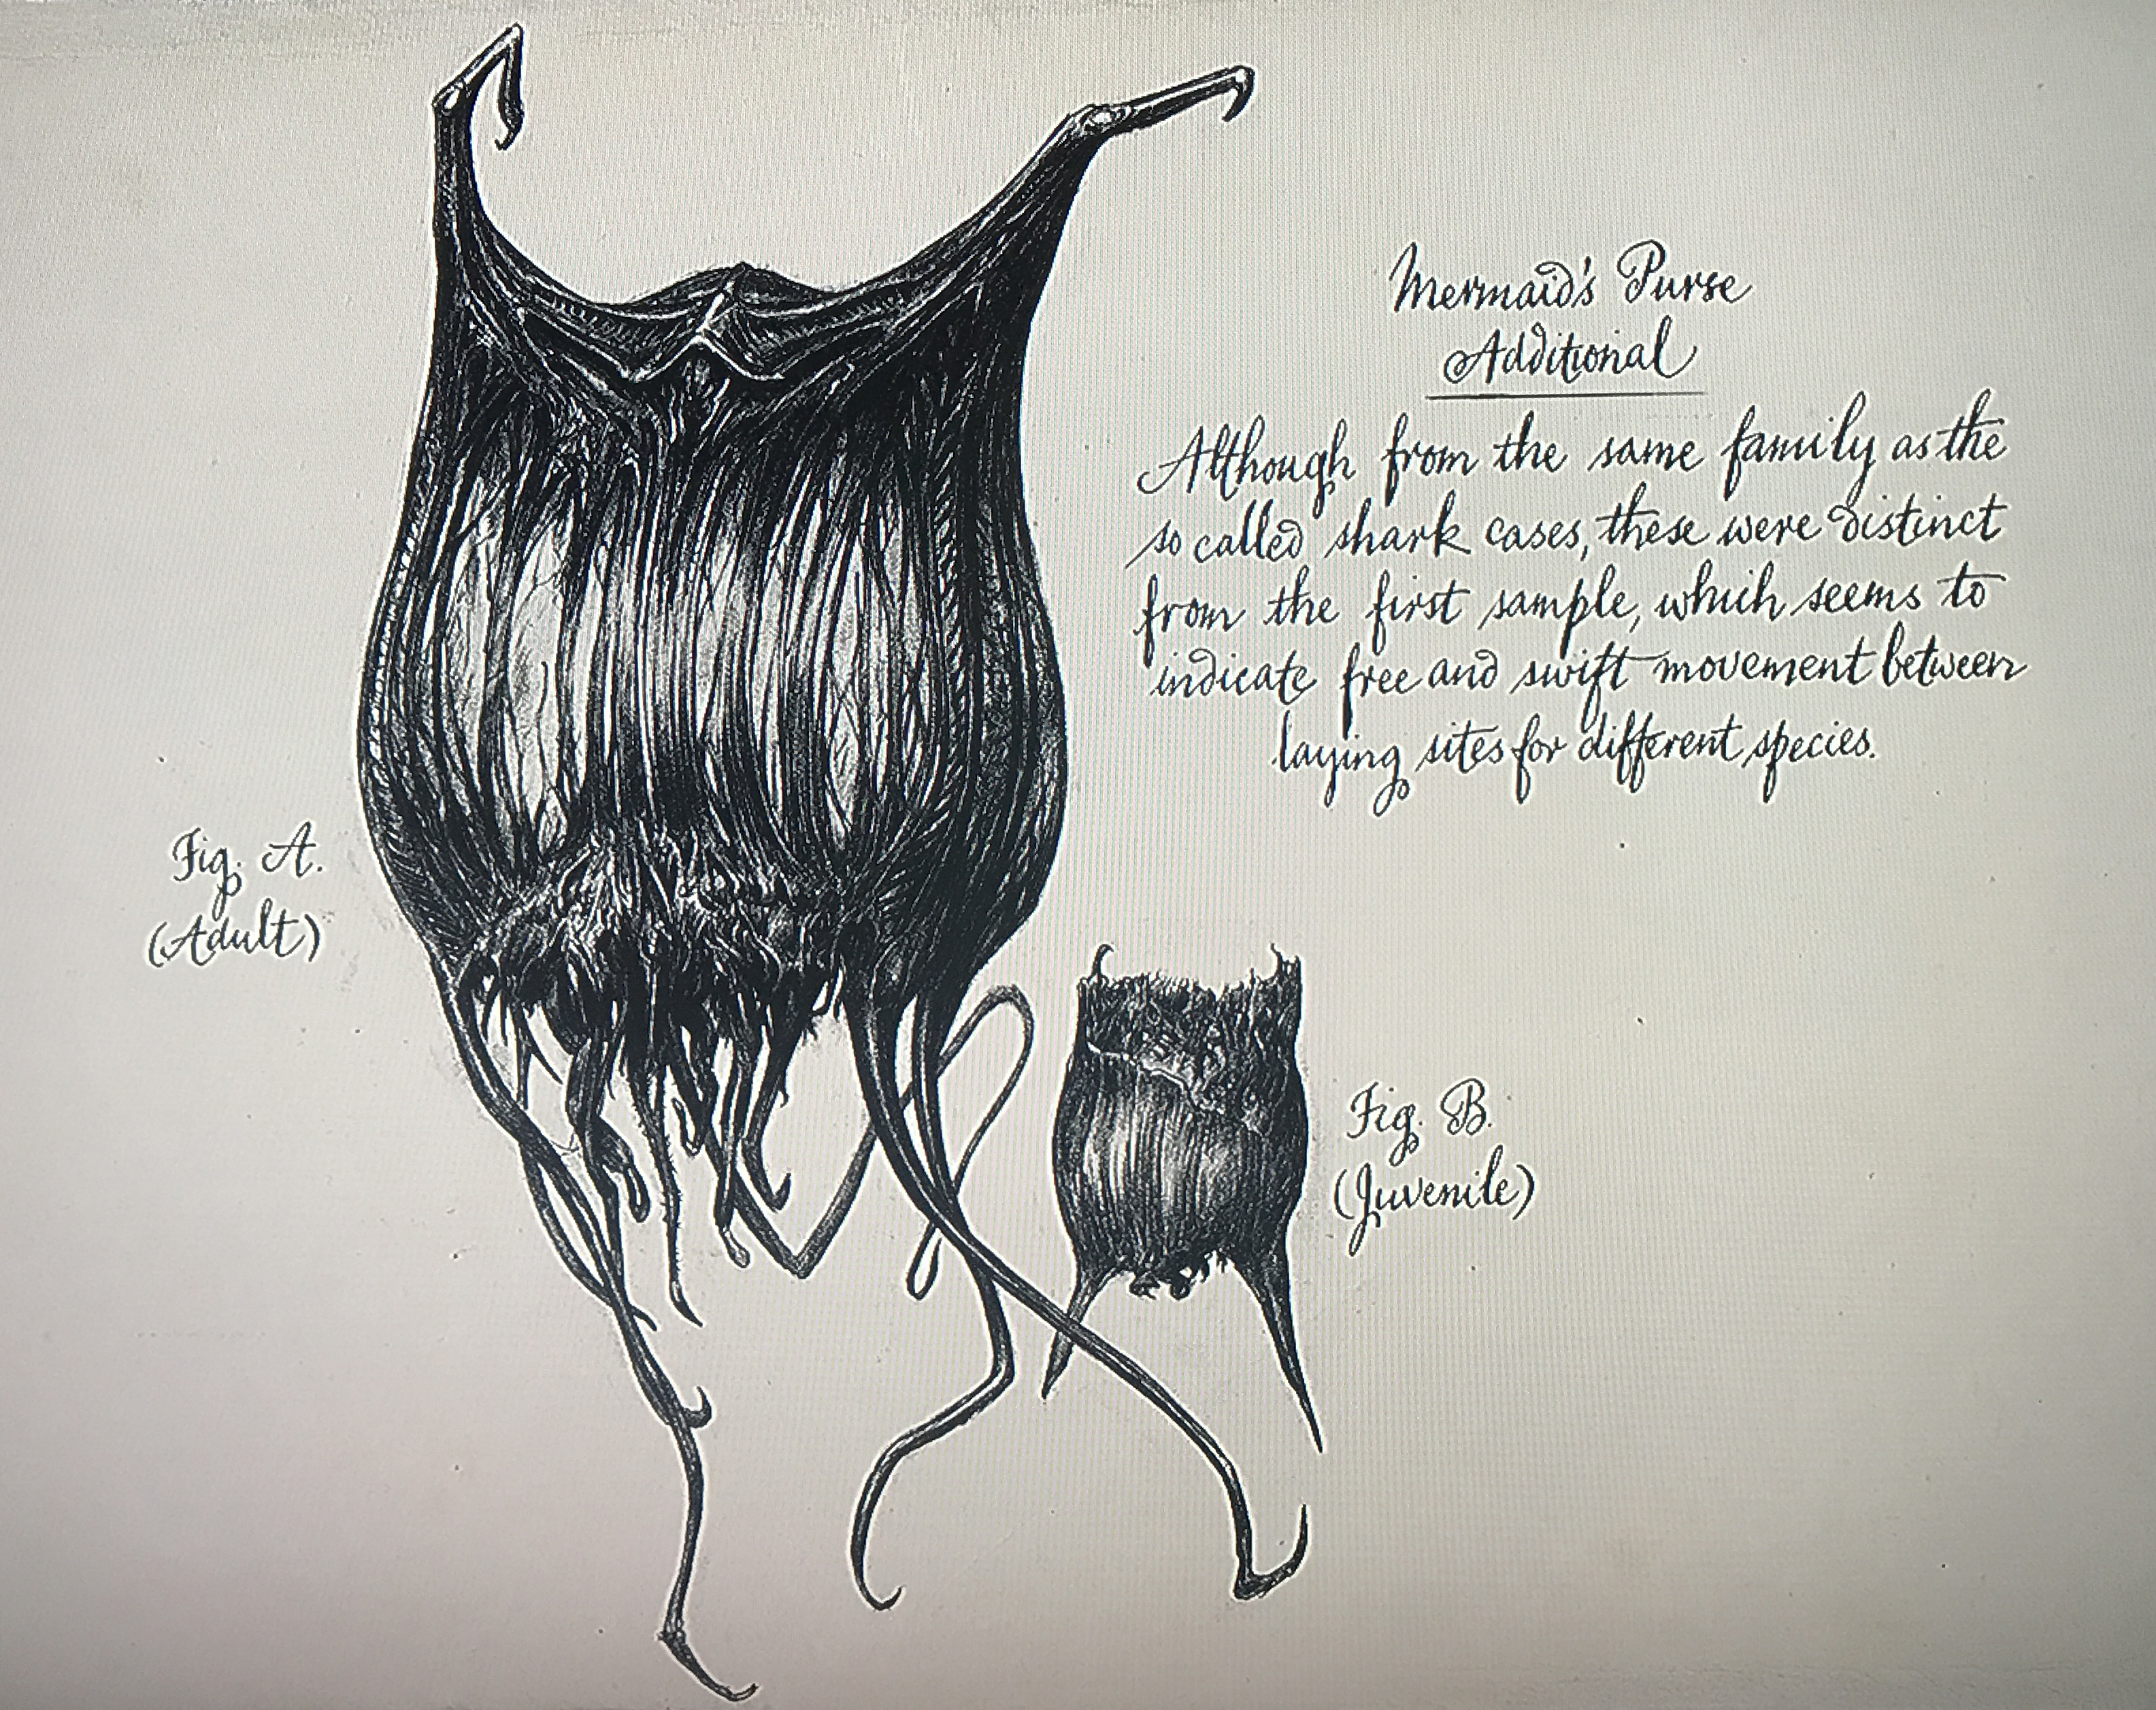 Mermaid's Purse
Additional
Although from the same family as the
so called shark cases, these were distinct
from the first sample, which seems to
indicate free and swift movement between
laying sites for different species.
Fig. A.
(Adult)
Fig. B.
(Juvenile)